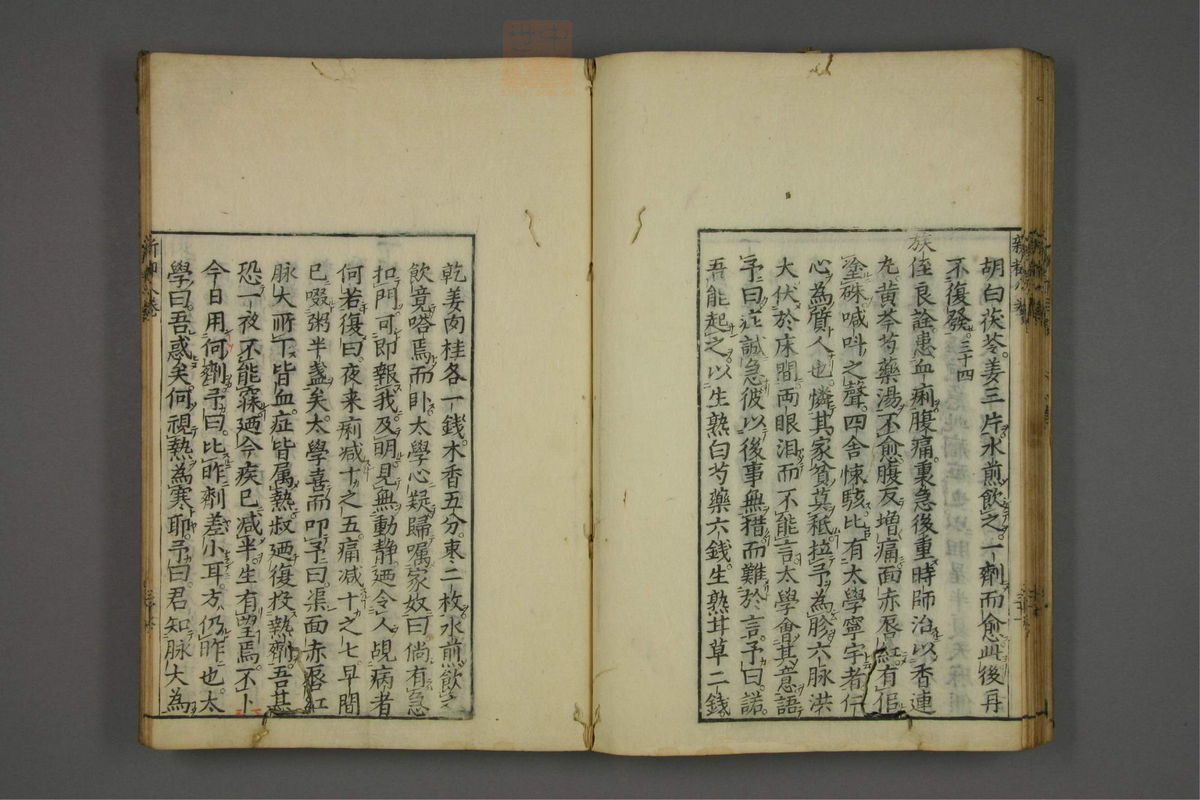 胡白茯苓。姜三片。水煎飲之。一劑而愈此後再
不復發。三十四
族侄良詮患血痢腹痛。裏急後重時師治以香連
丸黃芩芍藥湯不愈腹反增痛面赤唇紅有佀
塗硃喊呌之聲。四舍悚駭比有太學寧宇者仁
心為質人也憐其家貧莫秪拉予為胗六脉洪
大伏於床間兩眼泪而不能言太學會其意語
予曰症誠急彼以後事無措而難於言。予曰諾。
吾能起之。以生熟白芍藥六錢。生熟甘草二錢
乾姜肉桂各一錢。木香五分。棗二枚。水煎飲之
飲竟嗒焉而卧太學心疑歸嘱家奴曰倘有急
扣門可即報我及明見無動静廼令人覘病者
何若復曰。夜来痢減十之五痛減十之七早間
已啜粥半盞矣。太學喜而叩予曰渠面赤唇紅
脉大所下皆血症皆属熱叔廼復投熱劑。吾甚
恐一夜不能寐廼今疾已減半。生有望焉不卜
今日用何劑予曰。比昨劑差小耳。方仍昨也。太
學曰。吾惑矣。何視熱為寒耶。予曰君知脉大為